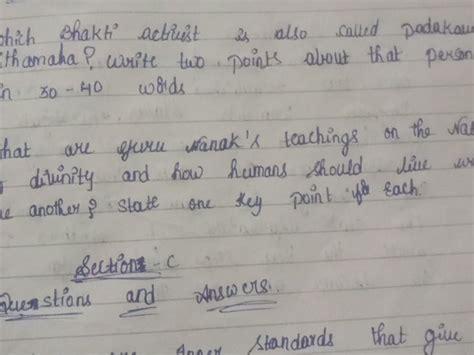 which Bhakti activist is also called padakav
ithamaha? write two points about that person
in 30-40 words
what are guru Nanak's teachings on the Na
divinity and how humans should live
one another? state one key point of each.
Section - C
Questions and Answers.
standards that give